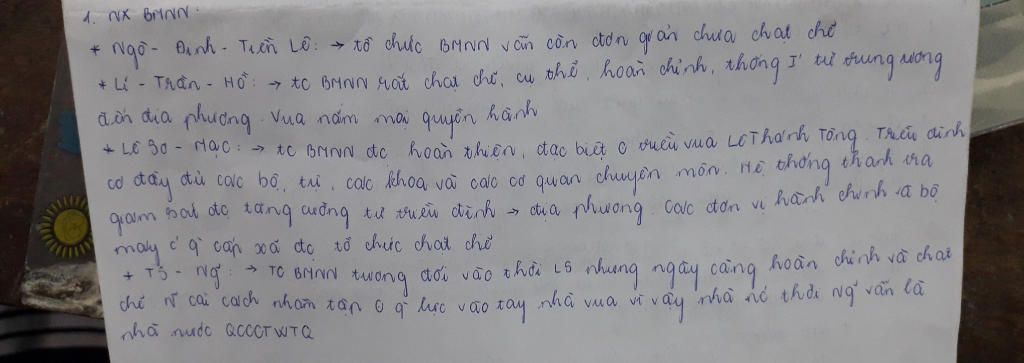 1. NX BMNN:
* Ngô - Đinh - Tiền Lê: → tổ chức BMNN vẫn còn đơn giản chưa chặt chẽ
* Lí - Trần - Hồ: → tc BMNN rất chặt chẽ, cụ thể, hoàn chỉnh, thống I' từ trung ương
đến địa phương. Vua nắm mọi quyền hành
* Lê Sơ - Mạc: → tc BMNN đc hoàn thiện, đặc biệt ở triều vua Lê Thánh Tông. Triều đình
có đầy đủ các bộ, tự, các khoa và các cơ quan chuyên môn. Hệ thống thanh tra
giám sát đc tăng cường từ triều đình → địa phương. Các đơn vị hành chính và bộ
máy c' q` cấp xã đc tổ chức chặt chẽ
* TS - Ng~: → TC BMNN tương đối vào thời LS nhưng ngày càng hoàn chỉnh và chặt
chẽ. N~ cải cách nhằm tập q` lực vào tay nhà vua vì vậy nhà nc thời Ng~ vẫn là
nhà nước QCCCTWTQ